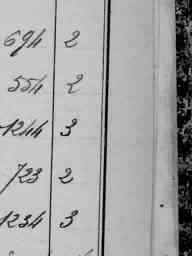 694 2
554 2
1244 3
723 2
1234 3